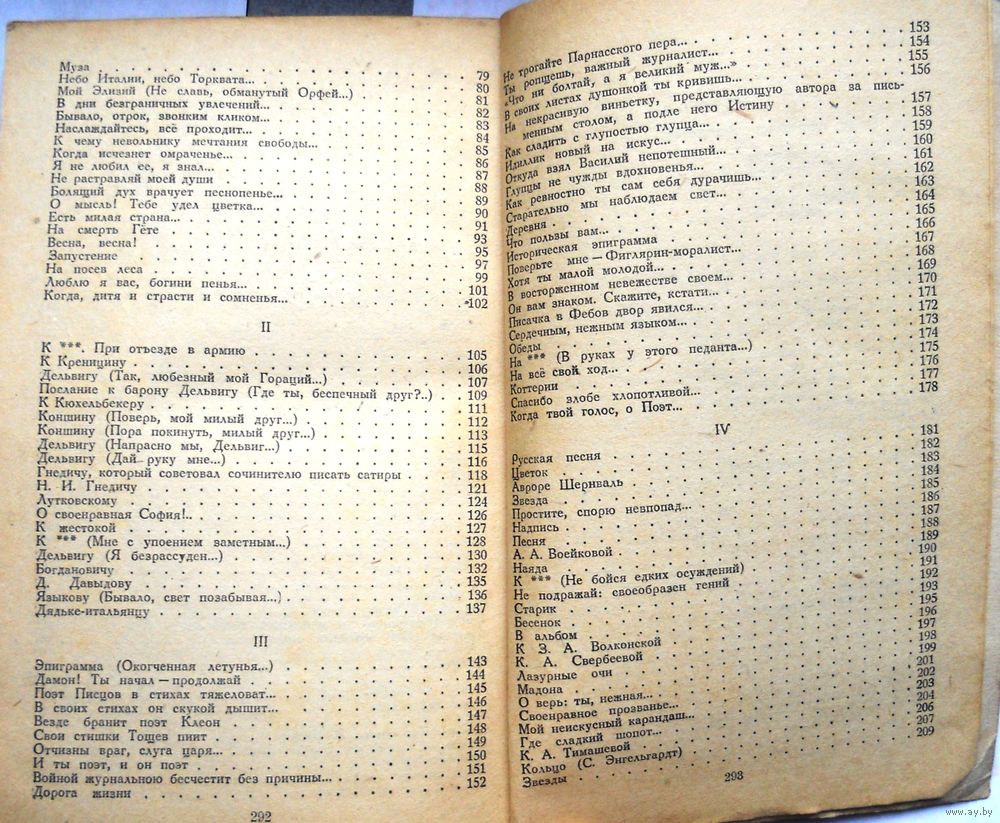 Муза 79
Небо Италии, небо Торквата... 80
Мой Элизий (Не славь, обманутый Орфей...) 81
В дни безграничных увлечений... 82
Бывало, отрок, звонким кликом... 83
Наслаждайтесь, всё проходит... 84
К чему невольнику мечтания свободы... 85
Когда исчезнет омраченье... 86
Я не любил ее, я знал... 87
Не растравляй моей души 88
Болящий дух врачует песнопенье... 89
О мысль! Тебе удел цветка... 90
Есть милая страна... 91
На смерть Гёте 93
Весна, весна! 95
Запустение 97
На посев леса 99
Люблю я вас, богини пенья... 101
Когда, дитя и страсти и сомненья... 102
II
К ***. При отъезде в армию 105
К Креницину 106
Дельвигу (Так, любезный мой Гораций...) 107
Послание к барону Дельвигу (Где ты, беспечный друг?..) 109
К Кюхельбекеру 111
Коншину (Поверь, мой милый друг...) 112
Коншину (Пора покинуть, милый друг...) 113
Дельвигу (Напрасно мы, Дельвиг...) 115
Дельвигу (Дай руку мне...) 116
Гнедичу, который советовал сочинителю писать сатиры 118
Н. И. Гнедичу 121
Лутковскому 124
О своенравная София!.. 126
К жестокой 127
К *** (Мне с упоением заметным...) 128
Дельвигу (Я безрассуден...) 130
Богдановичу 132
Д. Давыдову 135
Языкову (Бывало, свет позабывая...) 136
Дядьке-итальянцу 137
III
Эпиграмма (Окогченная летунья...) 143
Дамон! Ты начал — продолжай 144
Поэт Писцов в стихах тяжеловат... 145
В своих стихах он скукой дышит... 146
Везде бранит поэт Клеон 147
Свои стишки Тощев пиит 148
Отчизны враг, слуга царя... 149
И ты поэт, и он поэт 150
Войной журнальною бесчестит без причины... 151
Дорога жизни 152
292
Не трогайте Парнасского пера... 153
Ты ропщешь, важный журналист... 154
«Что ни болтай, а я великий муж...» 155
В своих листах душонкой ты кривишь... 156
На некрасивую виньетку, представляющую автора за пись-
менным столом, а подле него Истину 157
Как сладить с глупостью глупца... 158
Идиллик новый на искус... 159
Откуда взял Василий непотешный... 160
Глупцы не чужды вдохновенья... 161
Как ревностно ты сам себя дурачишь... 162
Старательно мы наблюдаем свет... 163
Деревня 164
Что пользы вам... 165
Историческая эпиграмма 166
Поверьте мне — Фиглярин-моралист... 167
Хотя ты малой молодой... 168
В восторженном невежестве своем... 169
Он вам знаком. Скажите, кстати... 170
Писачка в Фебов двор явился... 171
Сердечным, нежным языком... 172
Обеды 173
На *** (В руках у этого педанта...) 174
На всё свой ход... 175
Коттерии 176
Спасибо злобе хлопотливой... 177
Когда твой голос, о Поэт... 178
IV
Русская песня 181
Цветок 182
Авроре Шернваль 183
Звезда 184
Простите, спорю невпопад... 185
Надпись 186
Песня 187
А. А. Воейковой 188
Наяда 189
К *** (Не бойся едких осуждений) 190
Не подражай: своеобразен гений 191
Старик 192
Бесенок 193
В альбом 195
К З. А. Волконской 196
К. А. Свербеевой 197
Лазурные очи 198
Мадона 199
О верь: ты, нежная... 201
Своенравное прозванье... 202
Мой неискусный карандаш... 203
Где сладкий шопот... 204
К. А. Тимашевой 206
Кольцо (С. Энгельгардт) 207
Звезды 209
293
www.ay.by